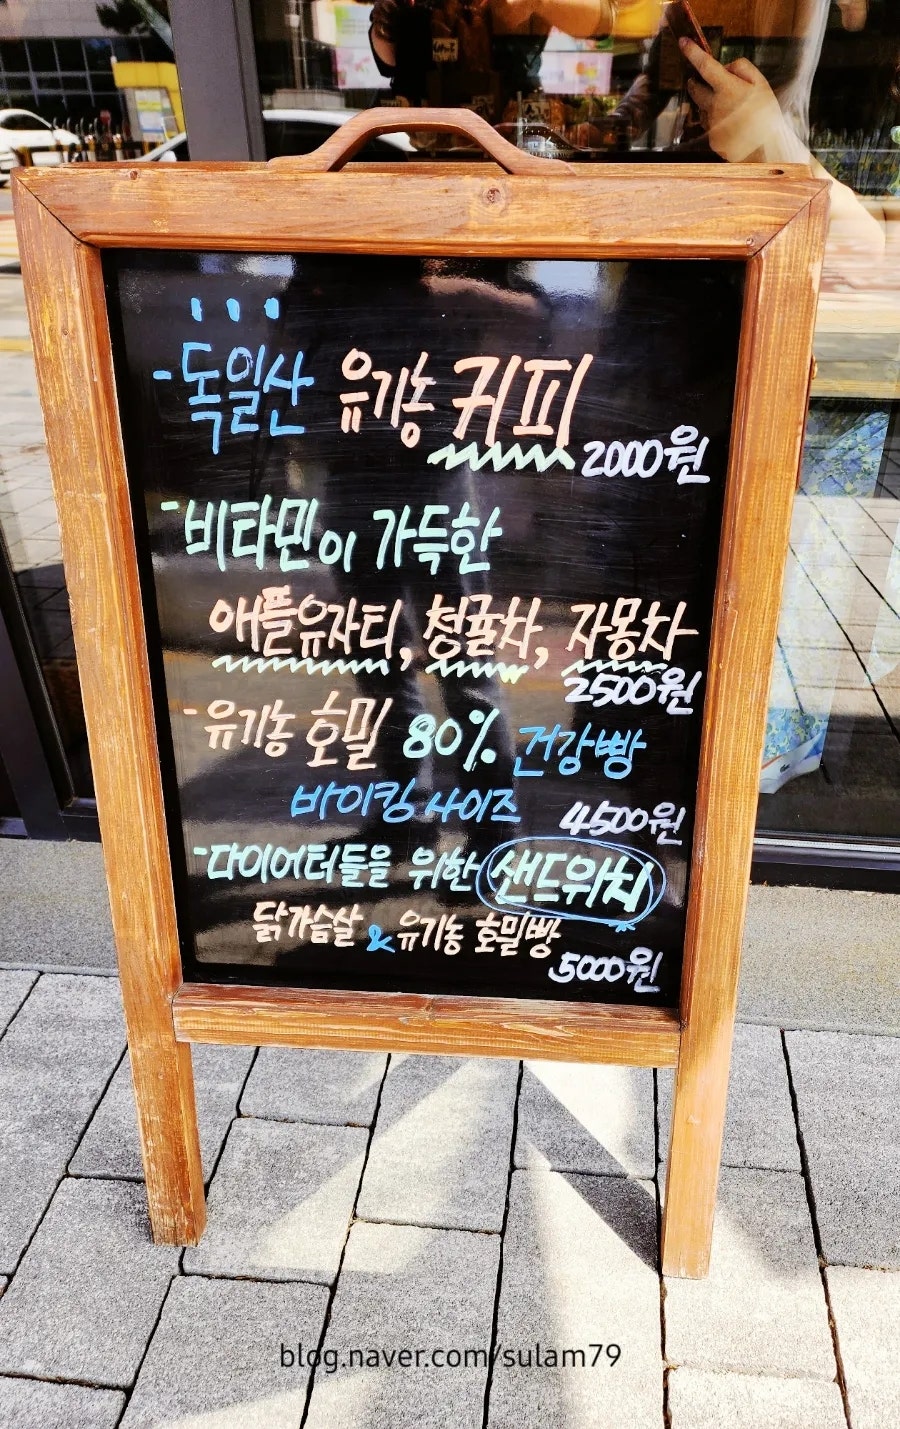 -독일산 유기농 커피
2000원
-비타민이 가득한
애플유자티, 청귤차, 자몽차
2500원
-유기농 호밀 80% 건강빵
바이킹 사이즈
4500원
-다이어터들을 위한 샌드위치
닭가슴살 & 유기농 호밀빵
5000원
blog.naver.com/sulam79